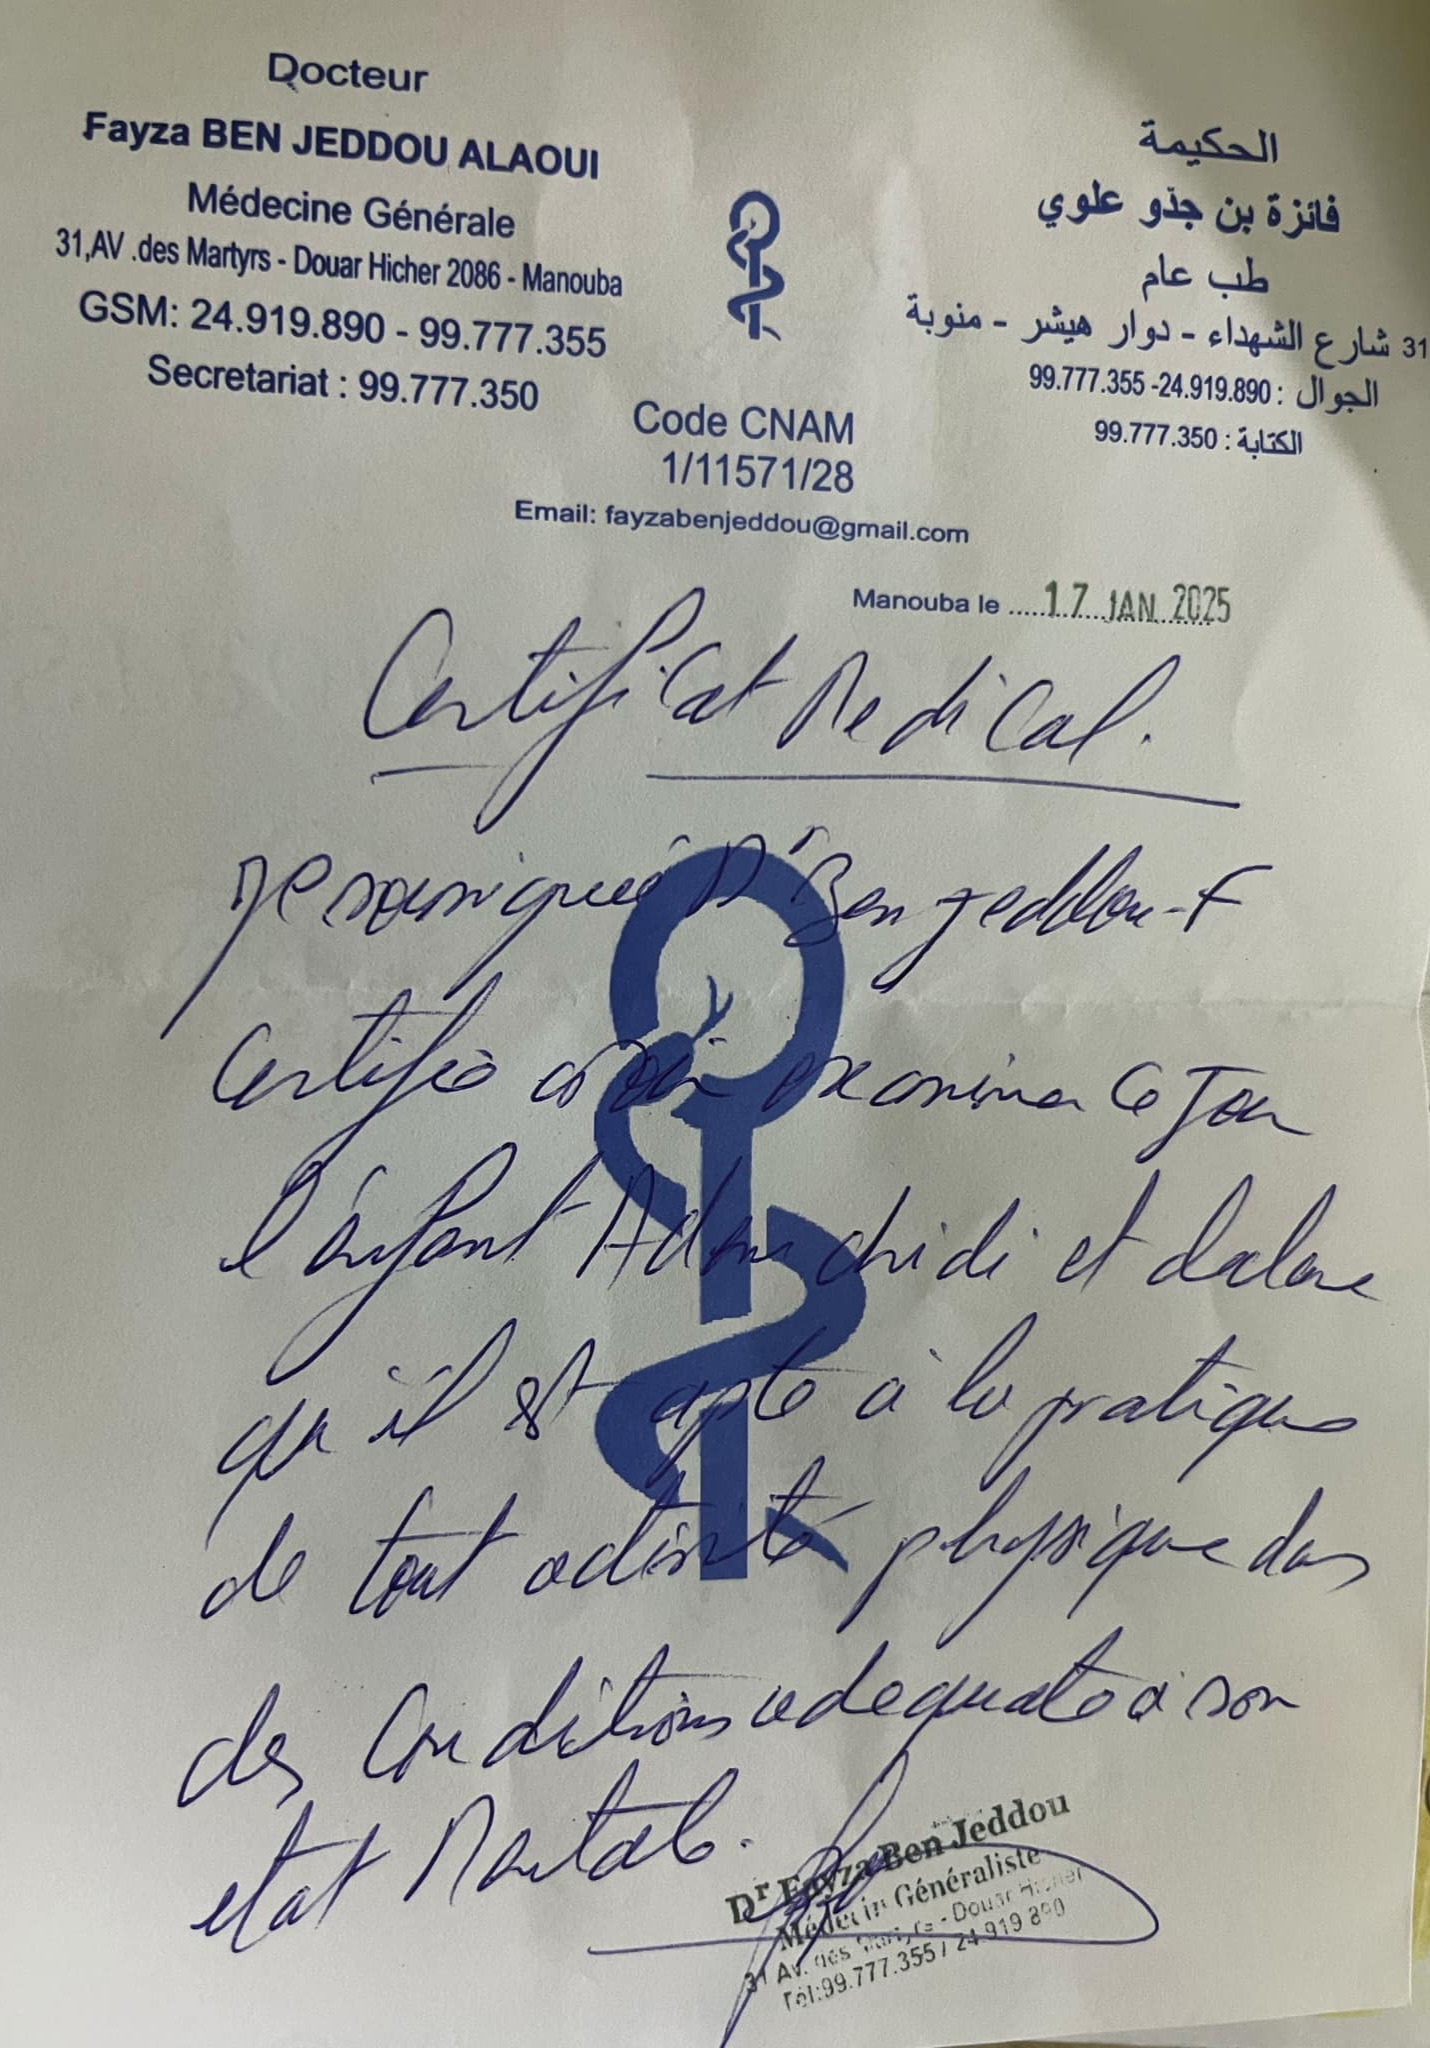 Docteur
Fayza BEN JEDDOU ALAOUI
Médecine Générale
31,AV .des Martyrs - Douar Hicher 2086 - Manouba
GSM: 24.919.890 - 99.777.355
Secretariat : 99.777.350
الحكيمة
فائزة بن جدّو علوي
طب عام
31 شارع الشهداء - دوار هيشر - منوبة
الجوال : 24.919.890- 99.777.355
الكتابة : 99.777.350
Code CNAM
1/11571/28
Email: fayzabenjeddou@gmail.com
Manouba le ....17 JAN 2025
Certificat Medical.
Je soussignée Dr Ben Jeddou-F
Certifie avoir examiner ce Jour
l'enfant Adem chidi et declare
qu'il est apte à la pratique
de tout activité physique dans
des Conditions adequate à son
etat Mentale.
Dr Fayza Ben Jeddou
Médecin Généraliste
31 Av. des Martyrs - Douar Hicher
Tél:99.777.355 / 24 919 890